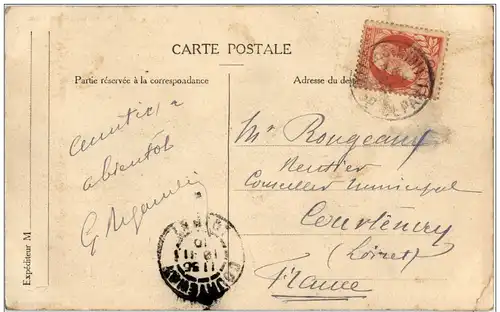 CARTE POSTALE
Partie réservée à la correspondance
Adresse du
amitiés, a
abientôt
Mr Rougeaux
Rentier
Conseiller municipal
Courtenay
(Loiret)
France
Expéditeur M
COURTENAY